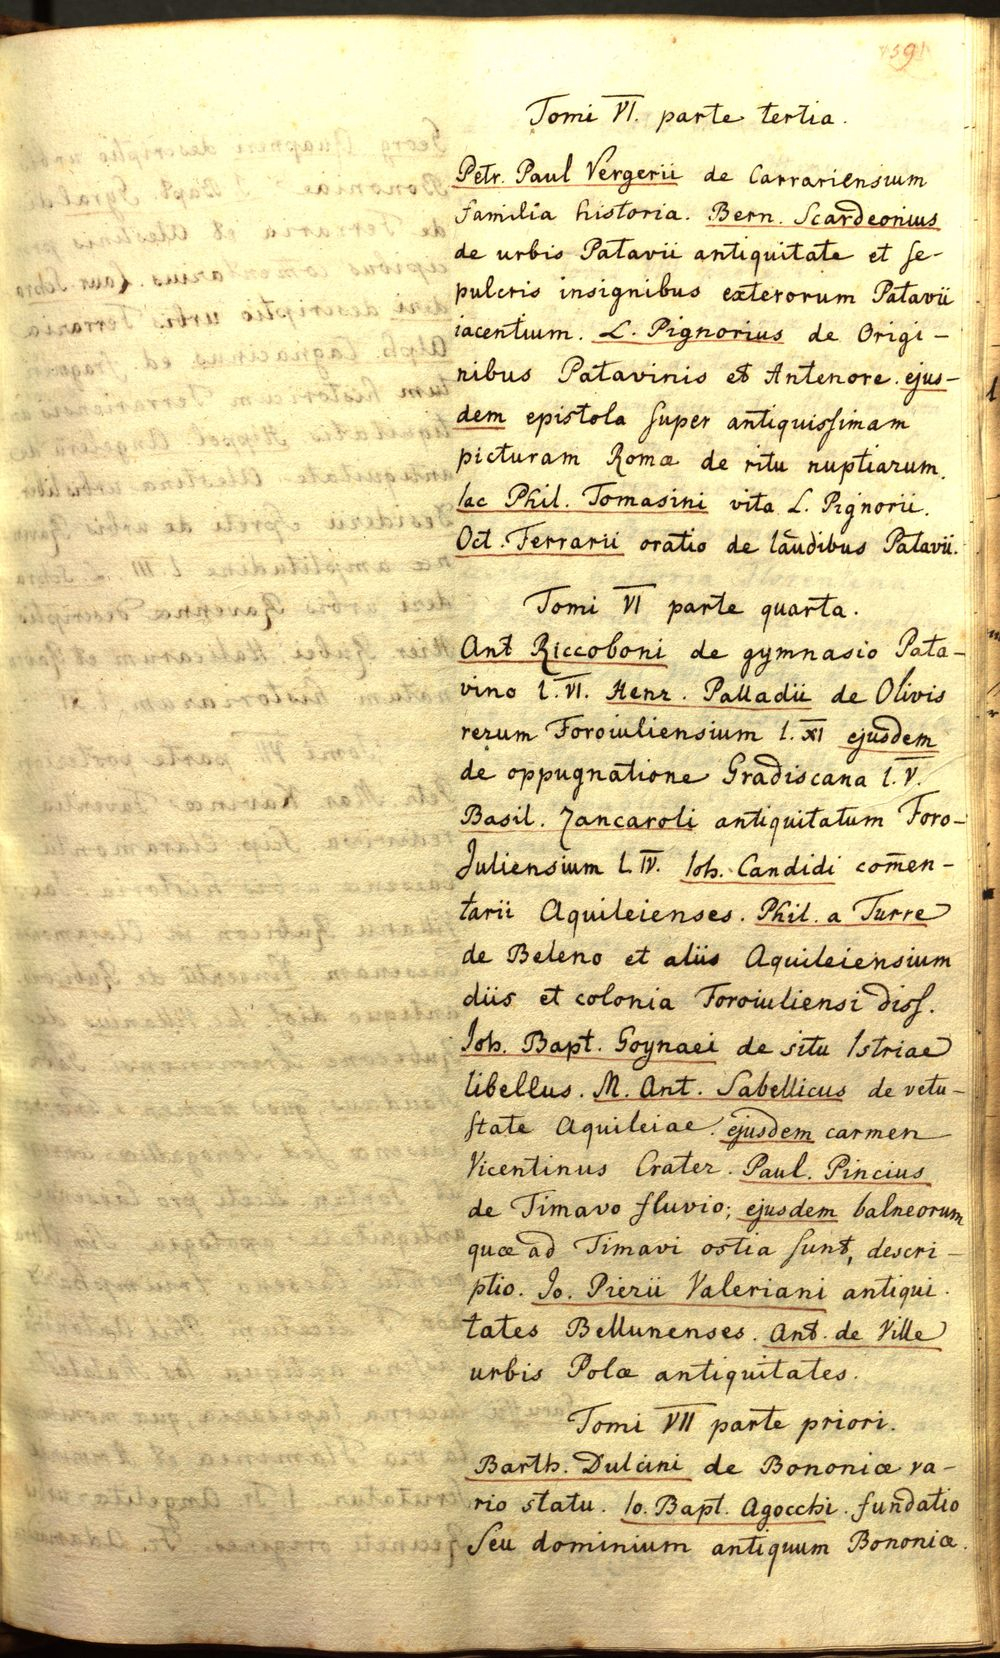 159
Tomi VI. parte tertia.
Petr. Paul Vergerii de Carrariensium
familia historia. Bern. Scardeonius
de urbis Patavii antiquitate et se-
pulcris insignibus exterorum Patavii
iacentium. L. Pignorius de Origi-
nibus Patavinis et Antenore. ejus-
dem epistola super antiquissimam
picturam Romæ de ritu nuptiarum.
Iac Phil. Tomasini vita L. Pignorii.
Oct. Ferrarii oratio de laudibus Patavii.
Tomi VI parte quarta.
Ant Riccoboni de gymnasio Pata-
vino l. VI. Henr. Palladii de Olivis
rerum Foroiuliensium l. XI ejusdem
de oppugnatione Gradiscana l. V.
Basil. Zancaroli antiquitatum Foro-
Juliensium l. IV. Ioh. Candidi com̄en-
tarii Aquileienses. Phil. a Turre
de Beleno et aliis Aquileiensium
diis et colonia Foroiuliensi diss.
Joh. Bapt. Goynaei de situ Istriae
libellus. M. Ant. Sabellicus de vetu-
state Aquileiae. ejusdem carmen
Vicentinus Crater. Paul. Pincius
de Timavo fluvio; ejusdem balneorum
quæ ad Timavi ostia sunt, descri-
ptio. Jo. Pierii Valeriani antiqui-
tates Bellunenses. Ant. de Ville
urbis Polæ antiquitates.
Tomi VII parte priori.
Barth. Dulcini de Bononiæ va-
rio statu. Io. Bapt. Agocchi. fundatio
seu dominium antiquum Bononiæ.